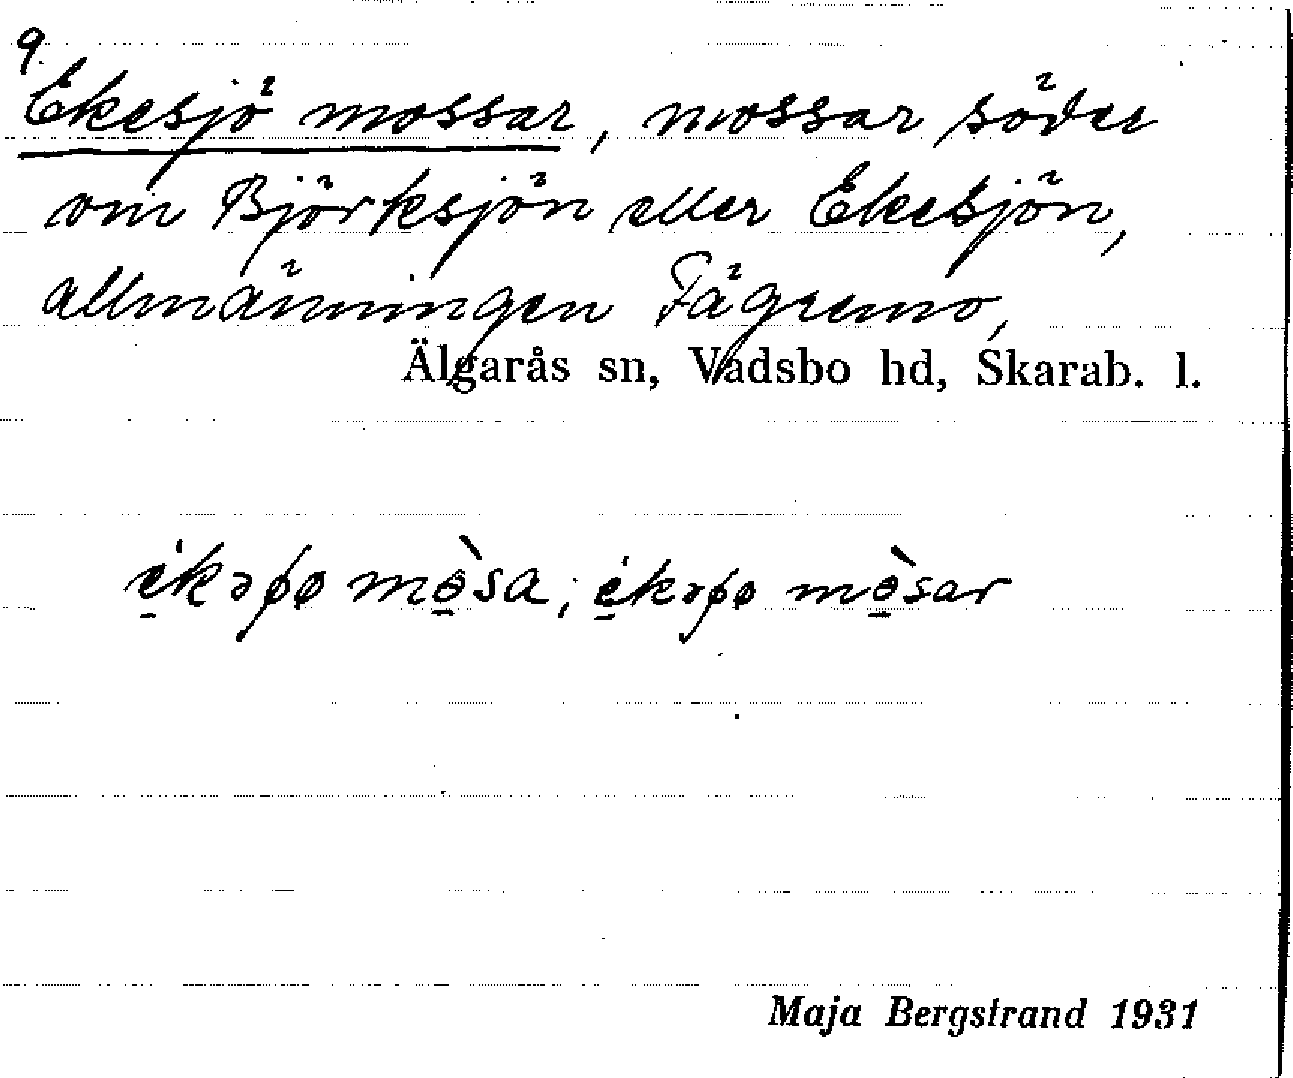 9.
Ekesjö mossar, mossar söder
om Björksjön eller Ekesjön,
allmänningen Fägremo,
Älgarås sn, Vadsbo hd, Skarab. l.
Maja Bergstrand 1931